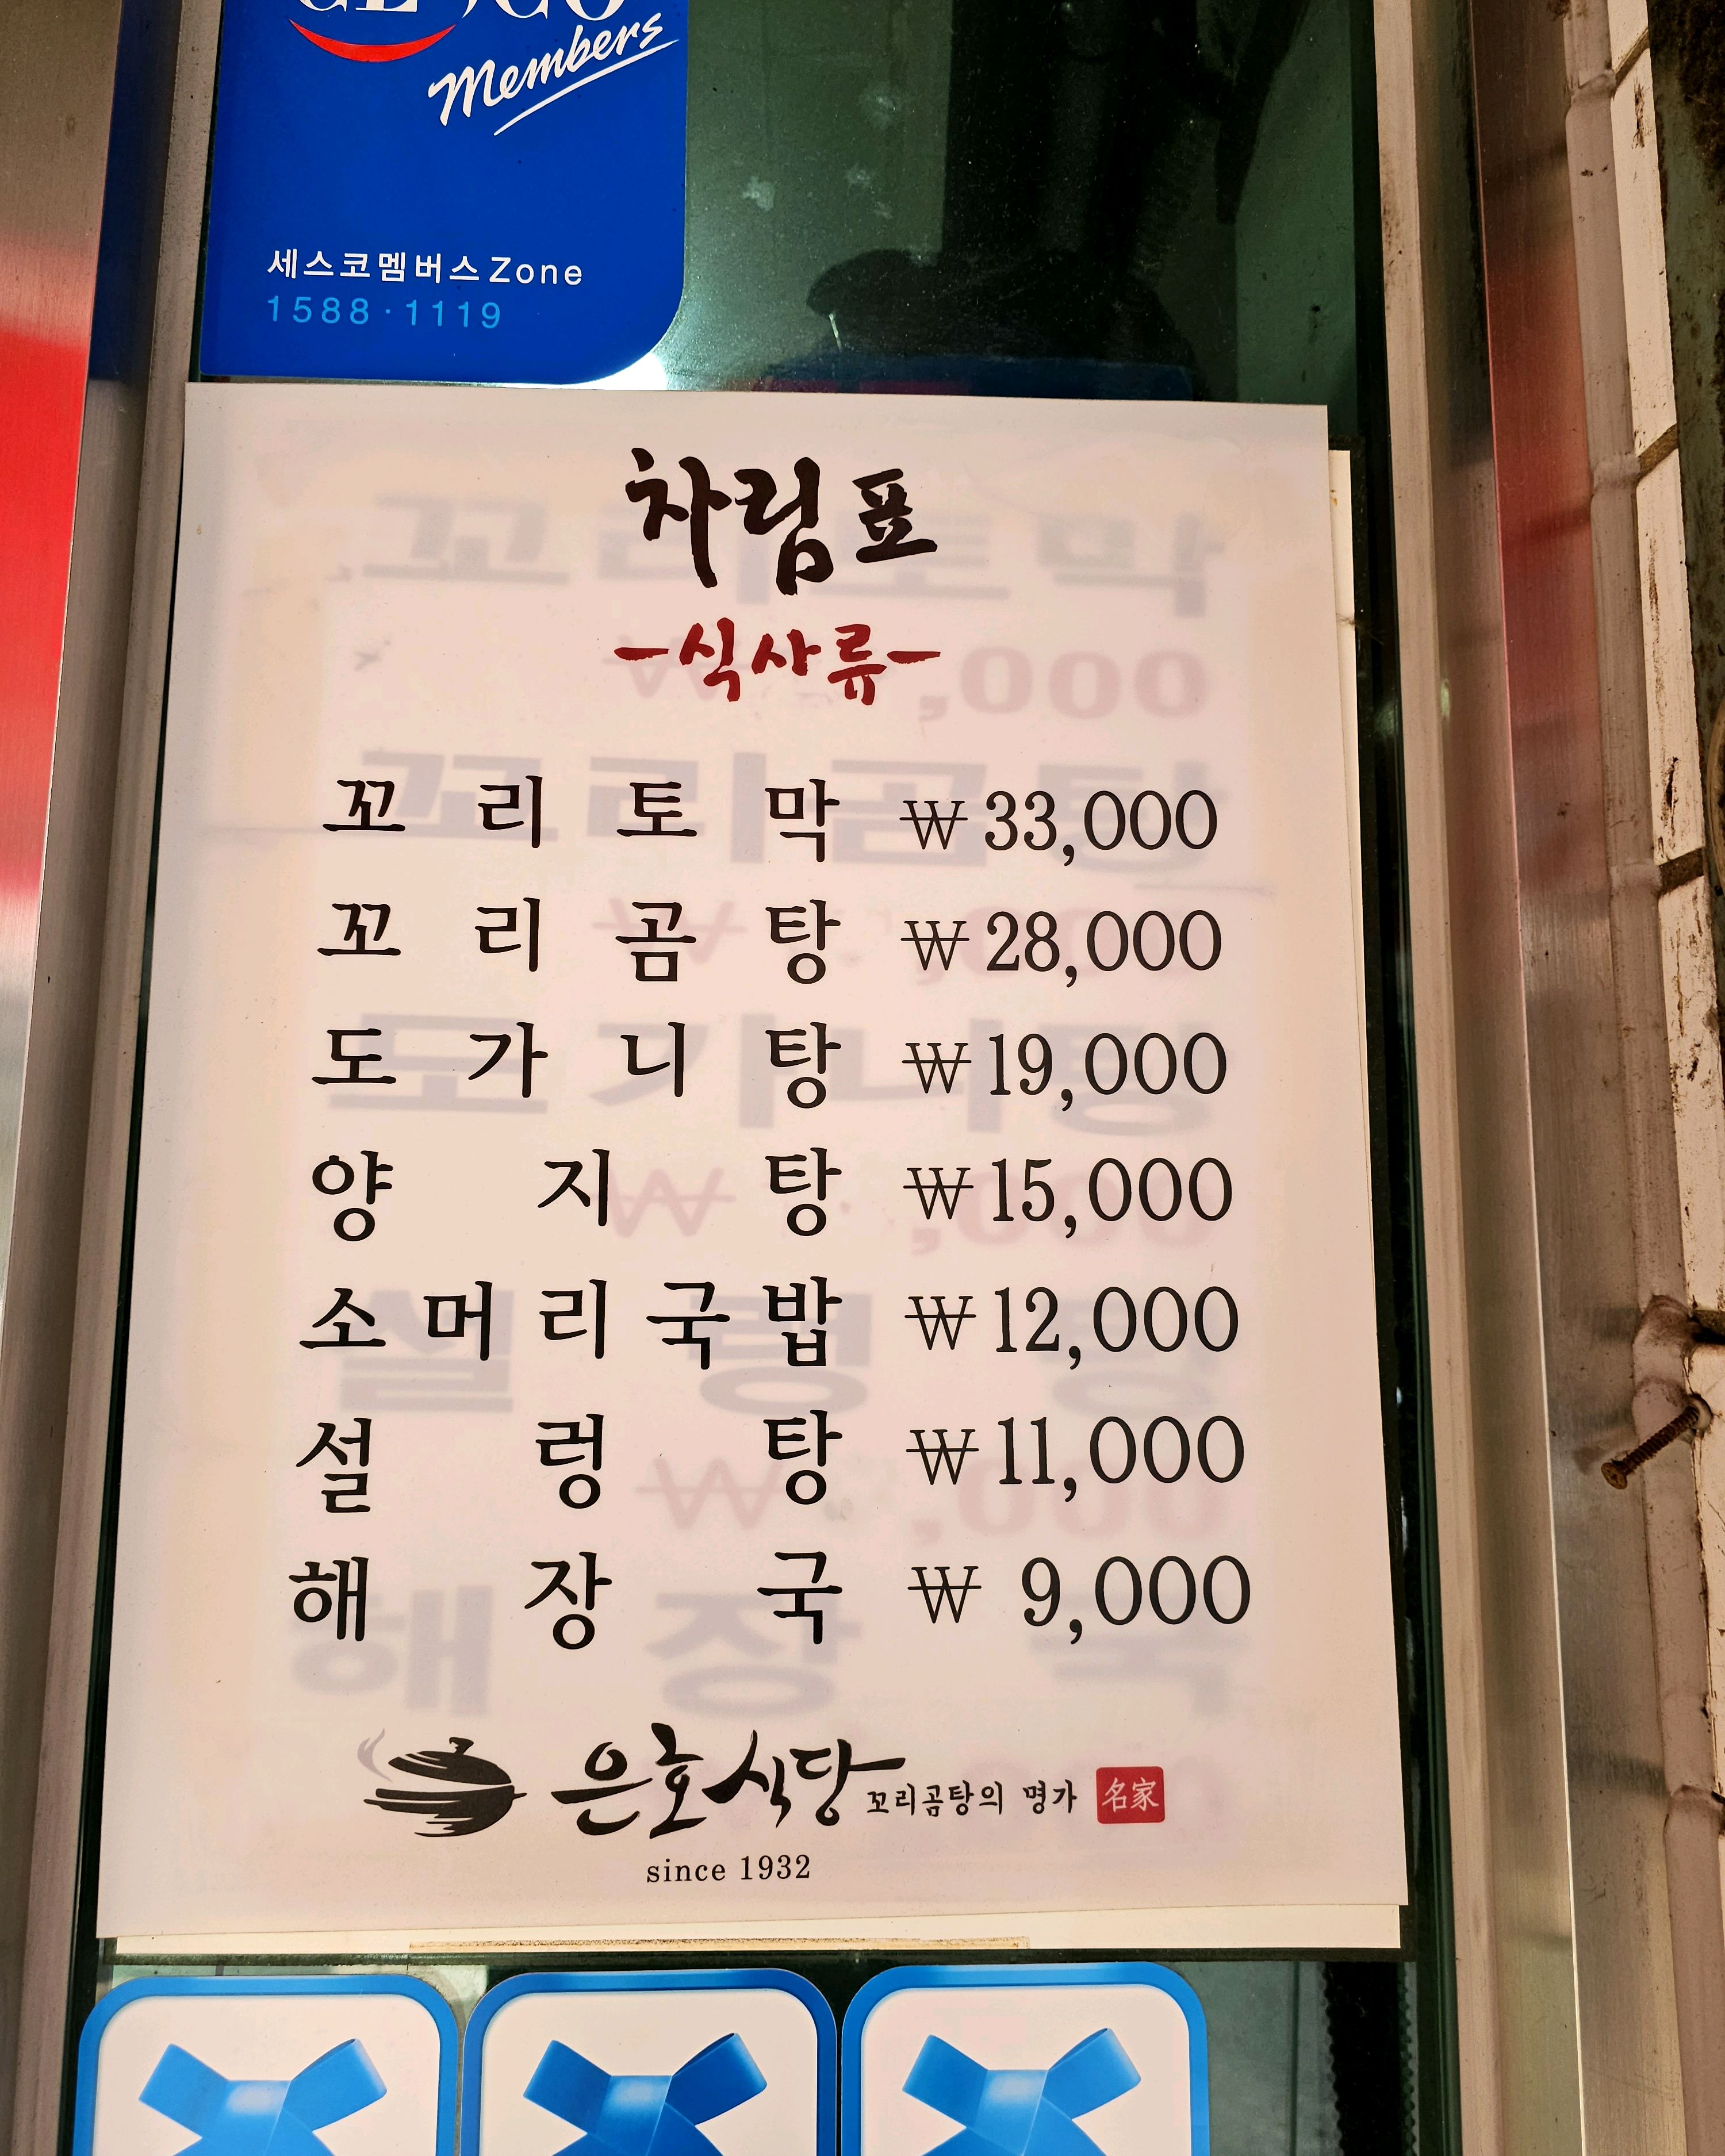 Members
세스코멤버스 Zone
1588·1119
차림표
-식사류-
꼬리토막 ₩33,000
꼬리곰탕 ₩28,000
도가니탕 ₩19,000
양지탕 ₩15,000
소머리국밥 ₩12,000
설렁탕 ₩11,000
해장국 ₩ 9,000
은호식당 꼬리곰탕의 명가 名家
since 1932